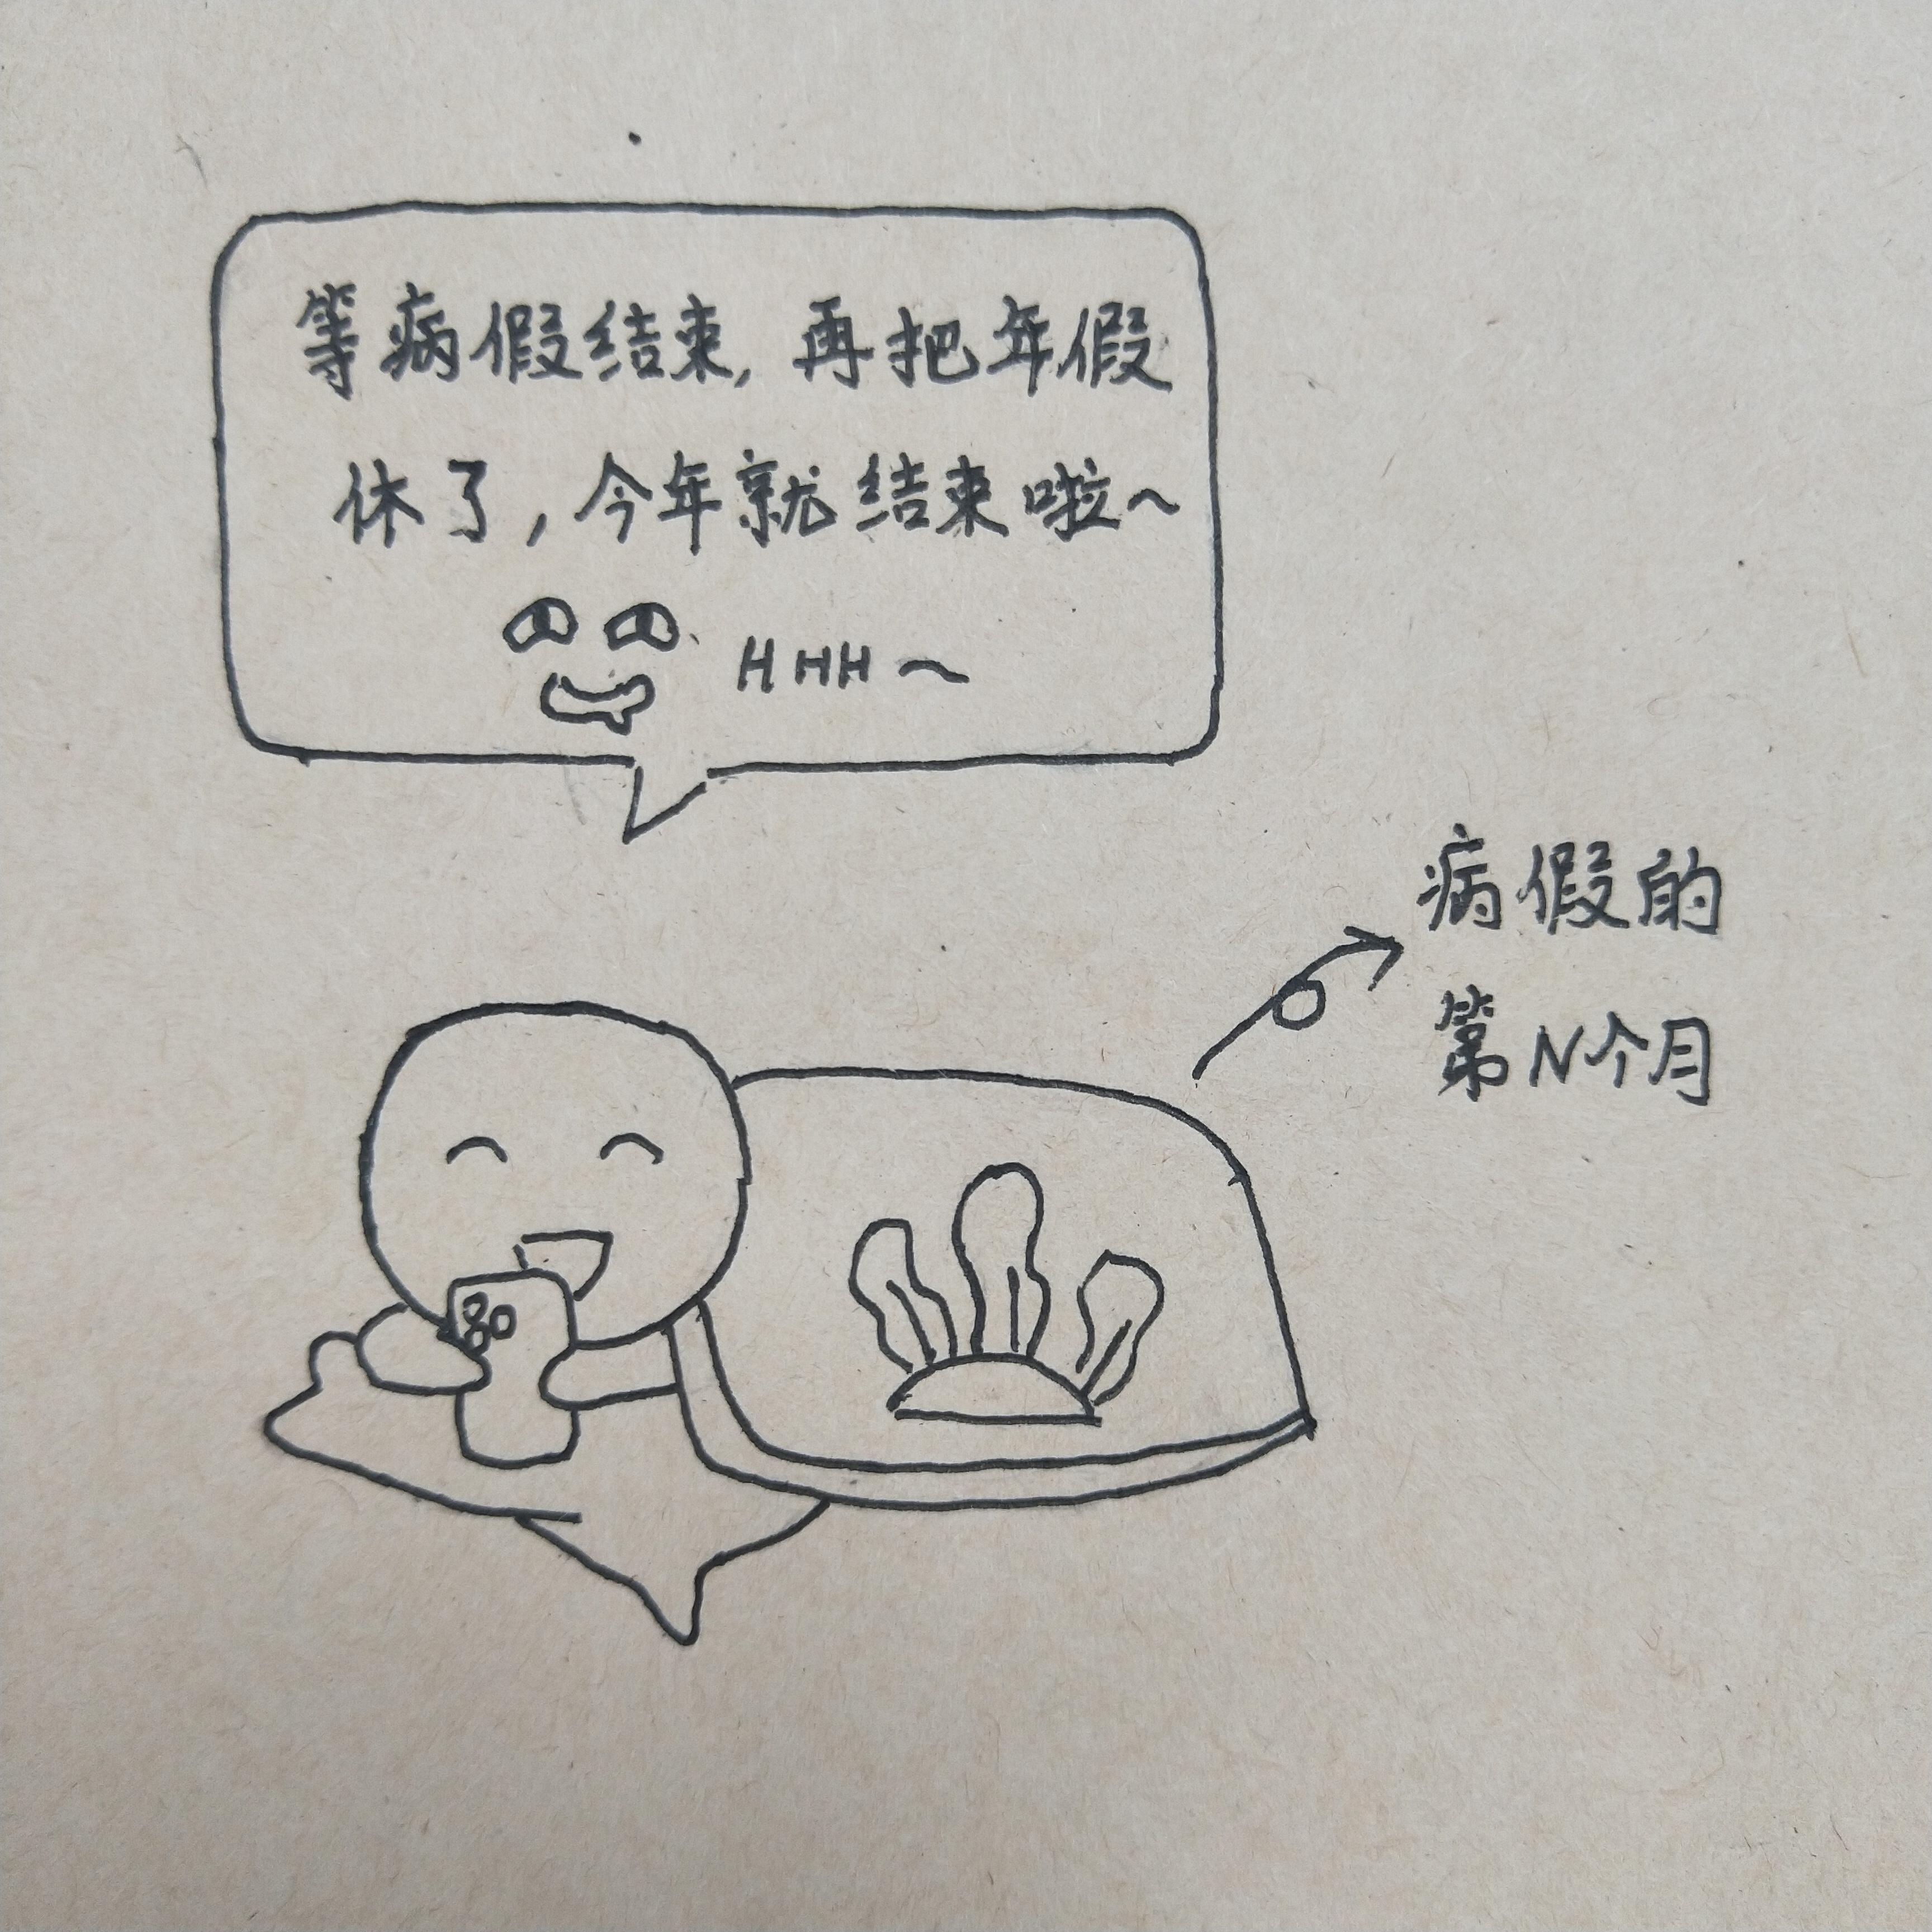 等病假结束,再把年假
休了,今年就结束啦~
HHH~
病假的
第N个月